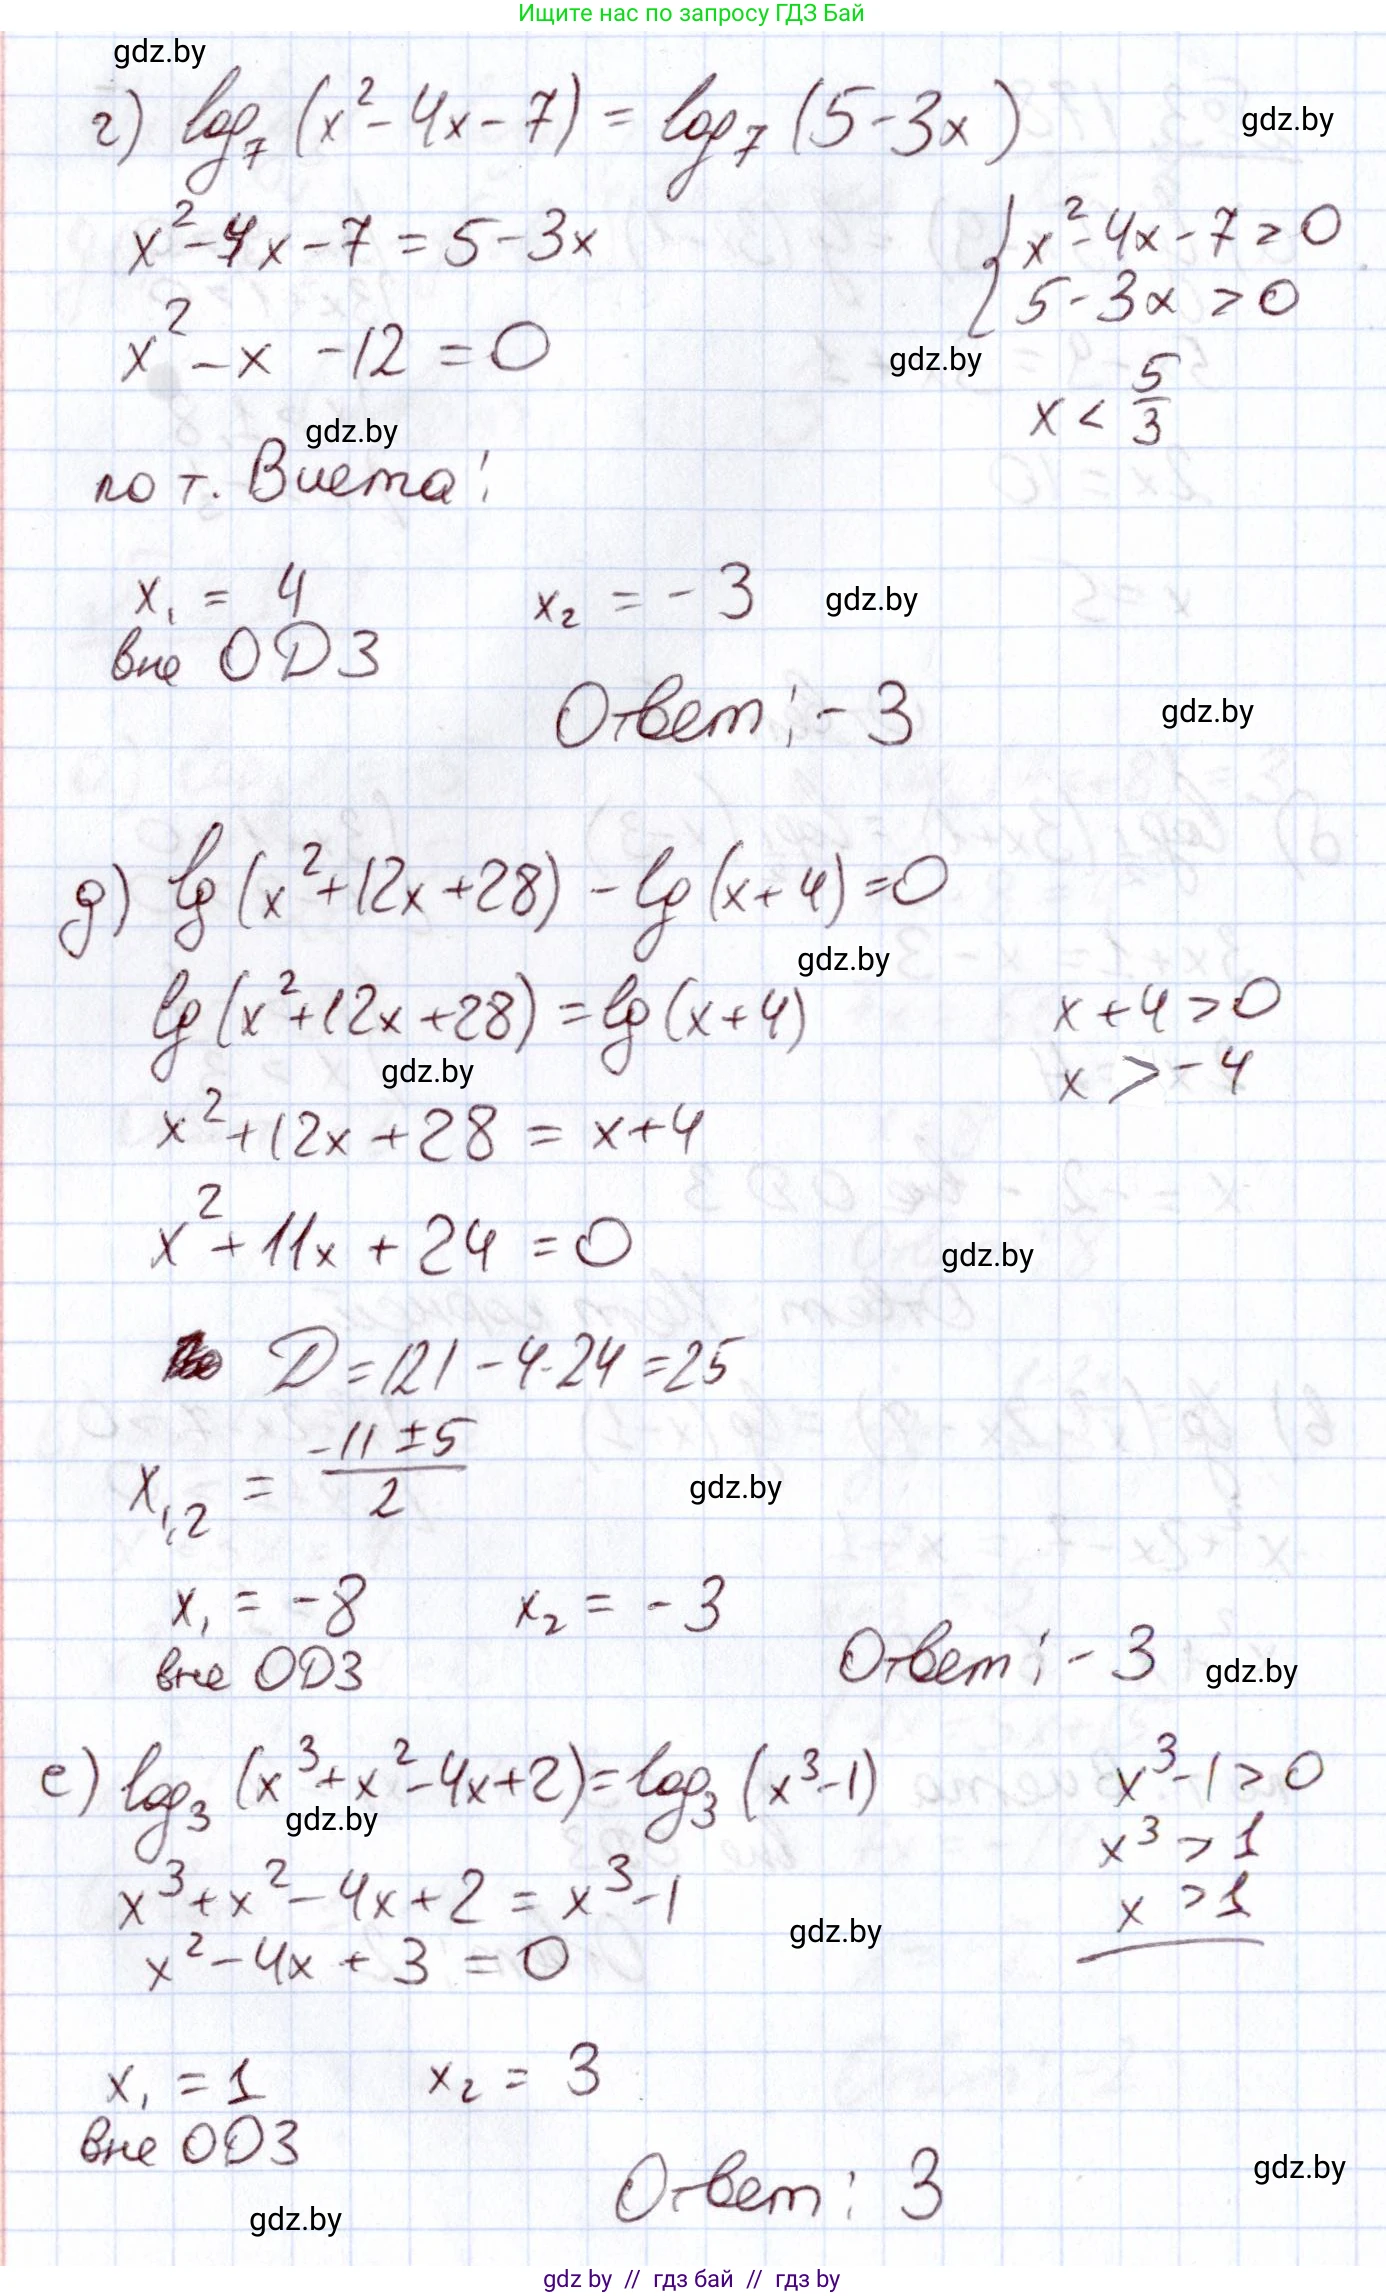 Ищите нас по запросу ГДЗ Бай
gdz.by
г) log₇ (x² - 4x - 7) = log₇ (5 - 3x)
gdz.by
x² - 4x - 7 = 5 - 3x
{ x² - 4x - 7 > 0
5 - 3x > 0
x² - x - 12 = 0
gdz.by
x < 5/3
gdz.by
по т. Виета:
x₁ = 4 x₂ = - 3
gdz.by
вне ОДЗ
Ответ: - 3
gdz.by
д) lg (x² + 12x + 28) - lg (x + 4) = 0
gdz.by
lg (x² + 12x + 28) = lg (x + 4)
x + 4 > 0
gdz.by
x > - 4
x² + 12x + 28 = x + 4
x² + 11x + 24 = 0
gdz.by
D = 121 - 4·24 = 25
x₁,₂ = (-11 ± 5)/2
gdz.by
x₁ = - 8 x₂ = - 3
вне ОДЗ
Ответ: - 3
gdz.by
е) log₃ (x³ + x² - 4x + 2) = log₃ (x³ - 1)
x³ - 1 > 0
gdz.by
x³ > 1
x³ + x² - 4x + 2 = x³ - 1
x > 1
gdz.by
x² - 4x + 3 = 0
x₁ = 1 x₂ = 3
вне ОДЗ
Ответ: 3
gdz.by
gdz.by
gdz by // гдз бай // гдз by